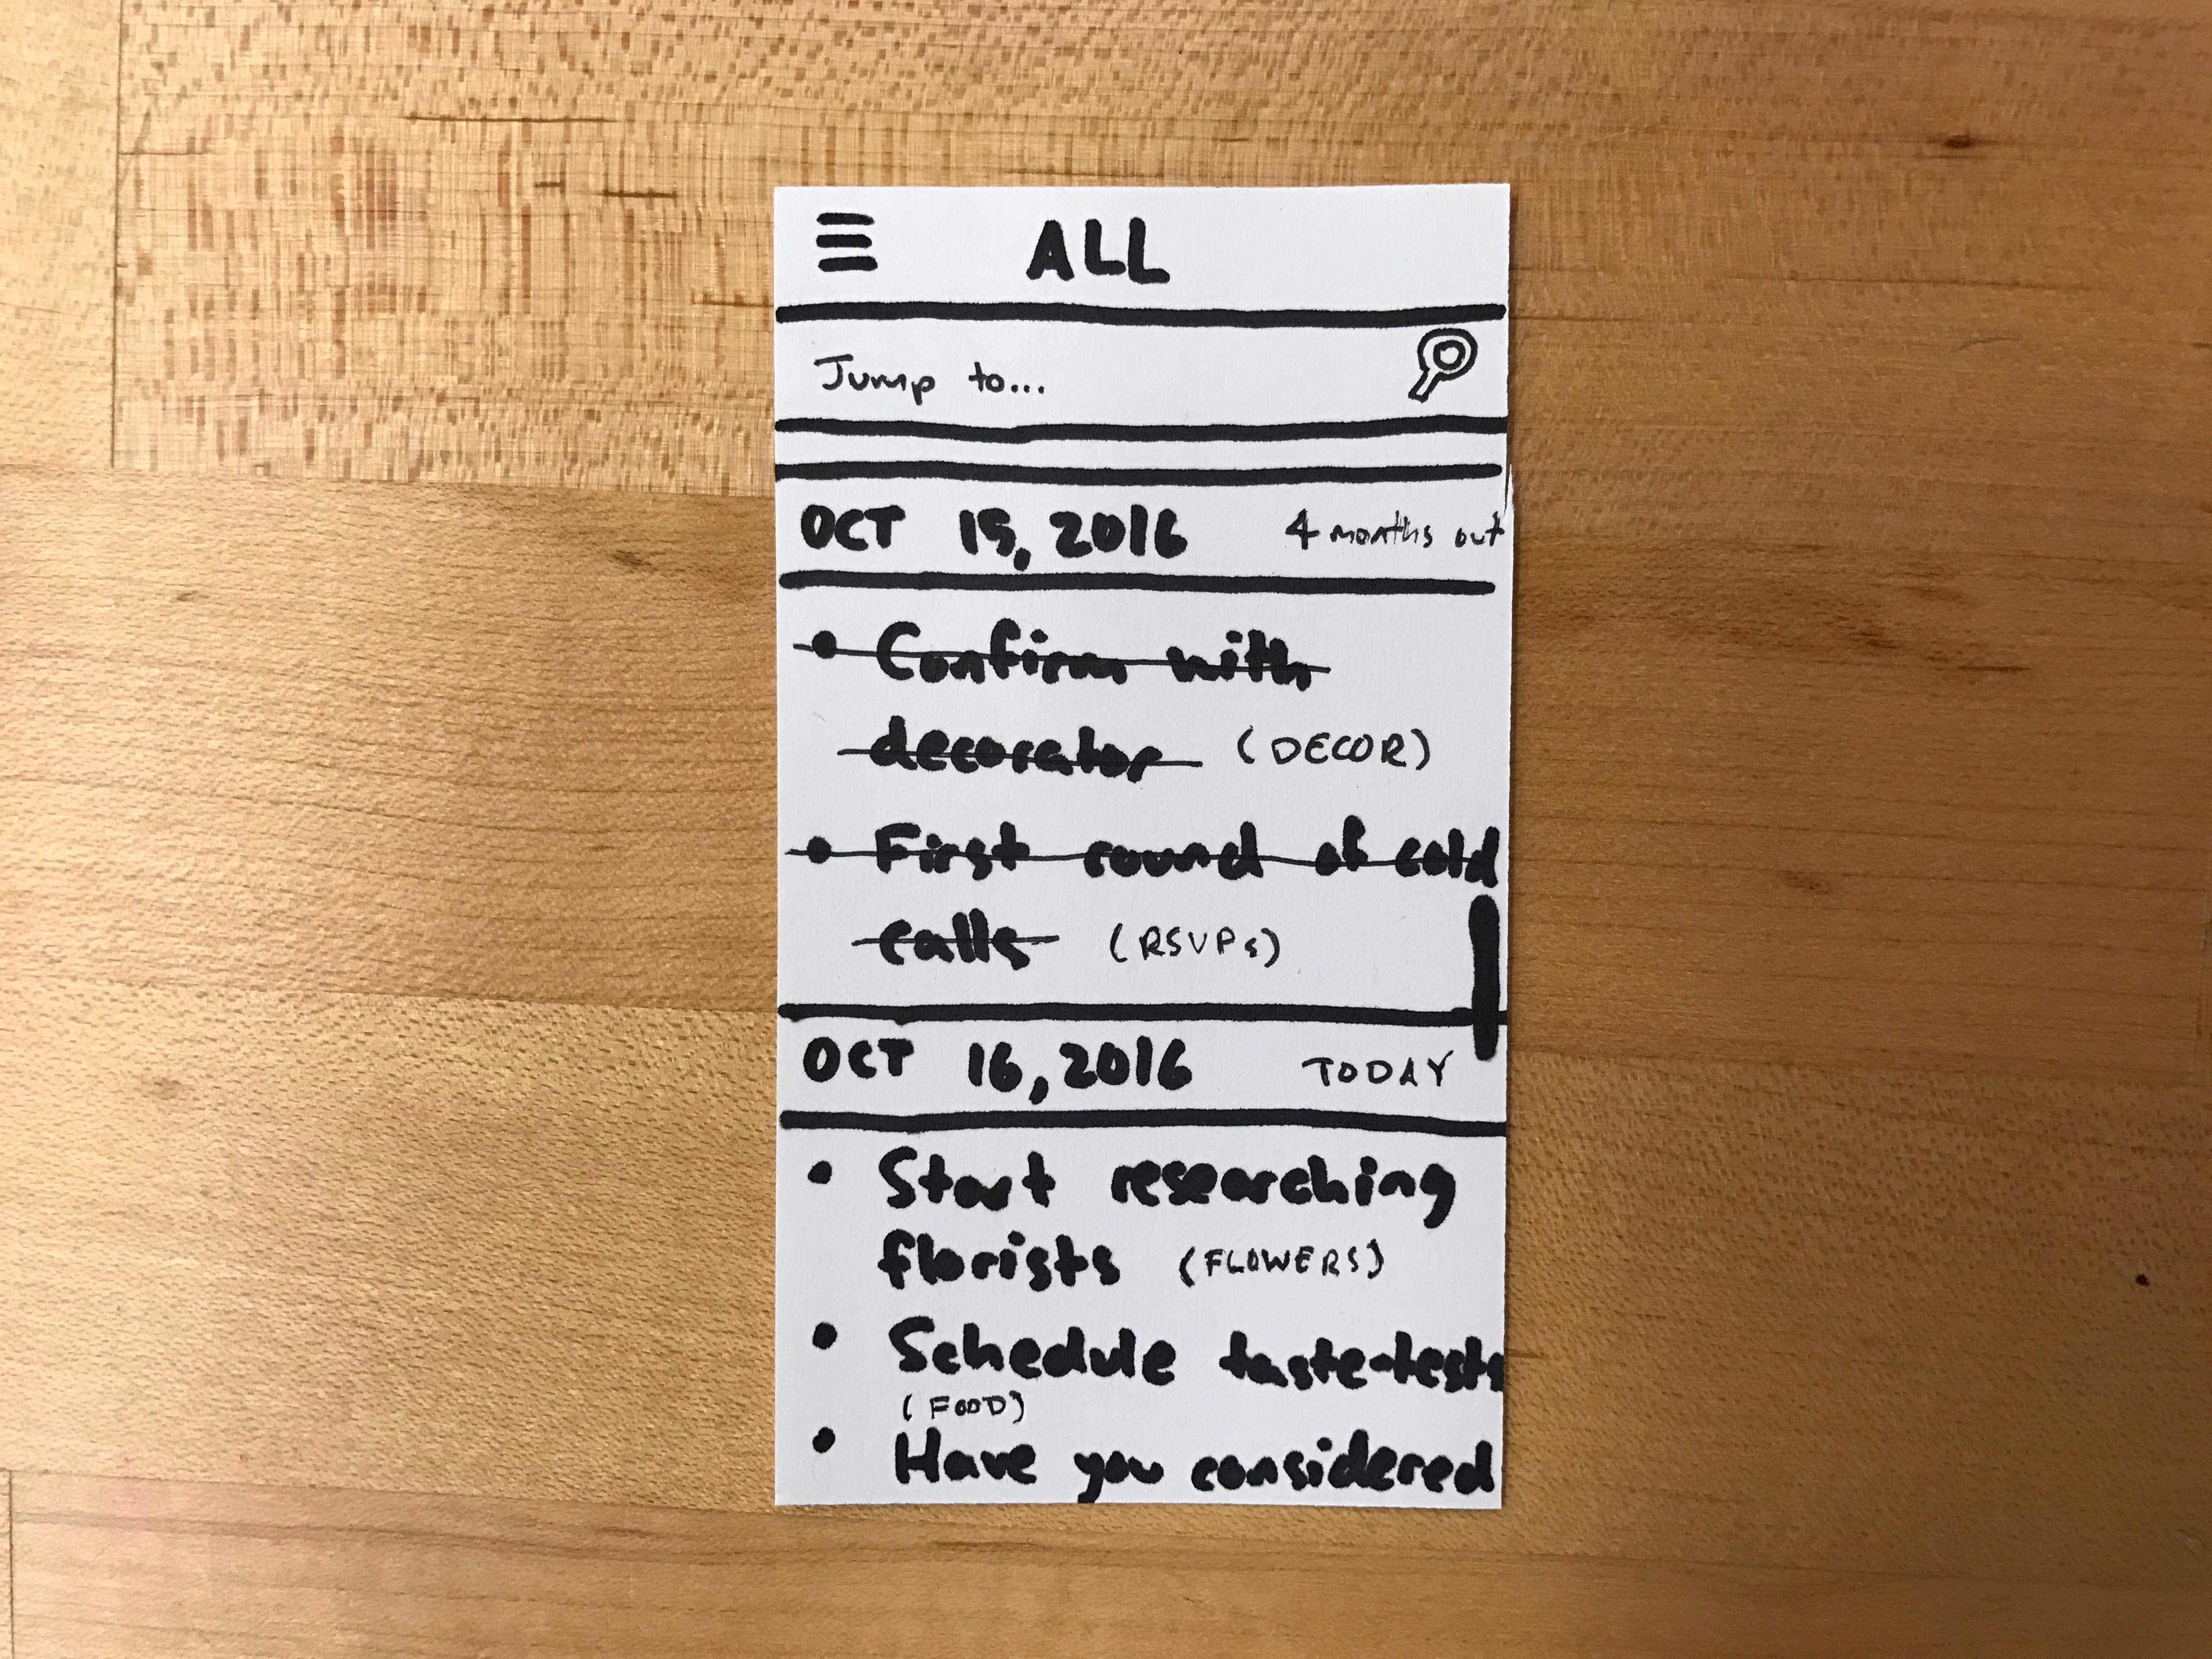 ALL
Jump to...
OCT 15, 2016 4 months out
• Confirm with
decorator (DECOR)
• First round of cold
calls (RSVPs)
OCT 16, 2016 TODAY
• Start researching
florists (FLOWERS)
• Schedule taste-tests
(FOOD)
• Have you considered